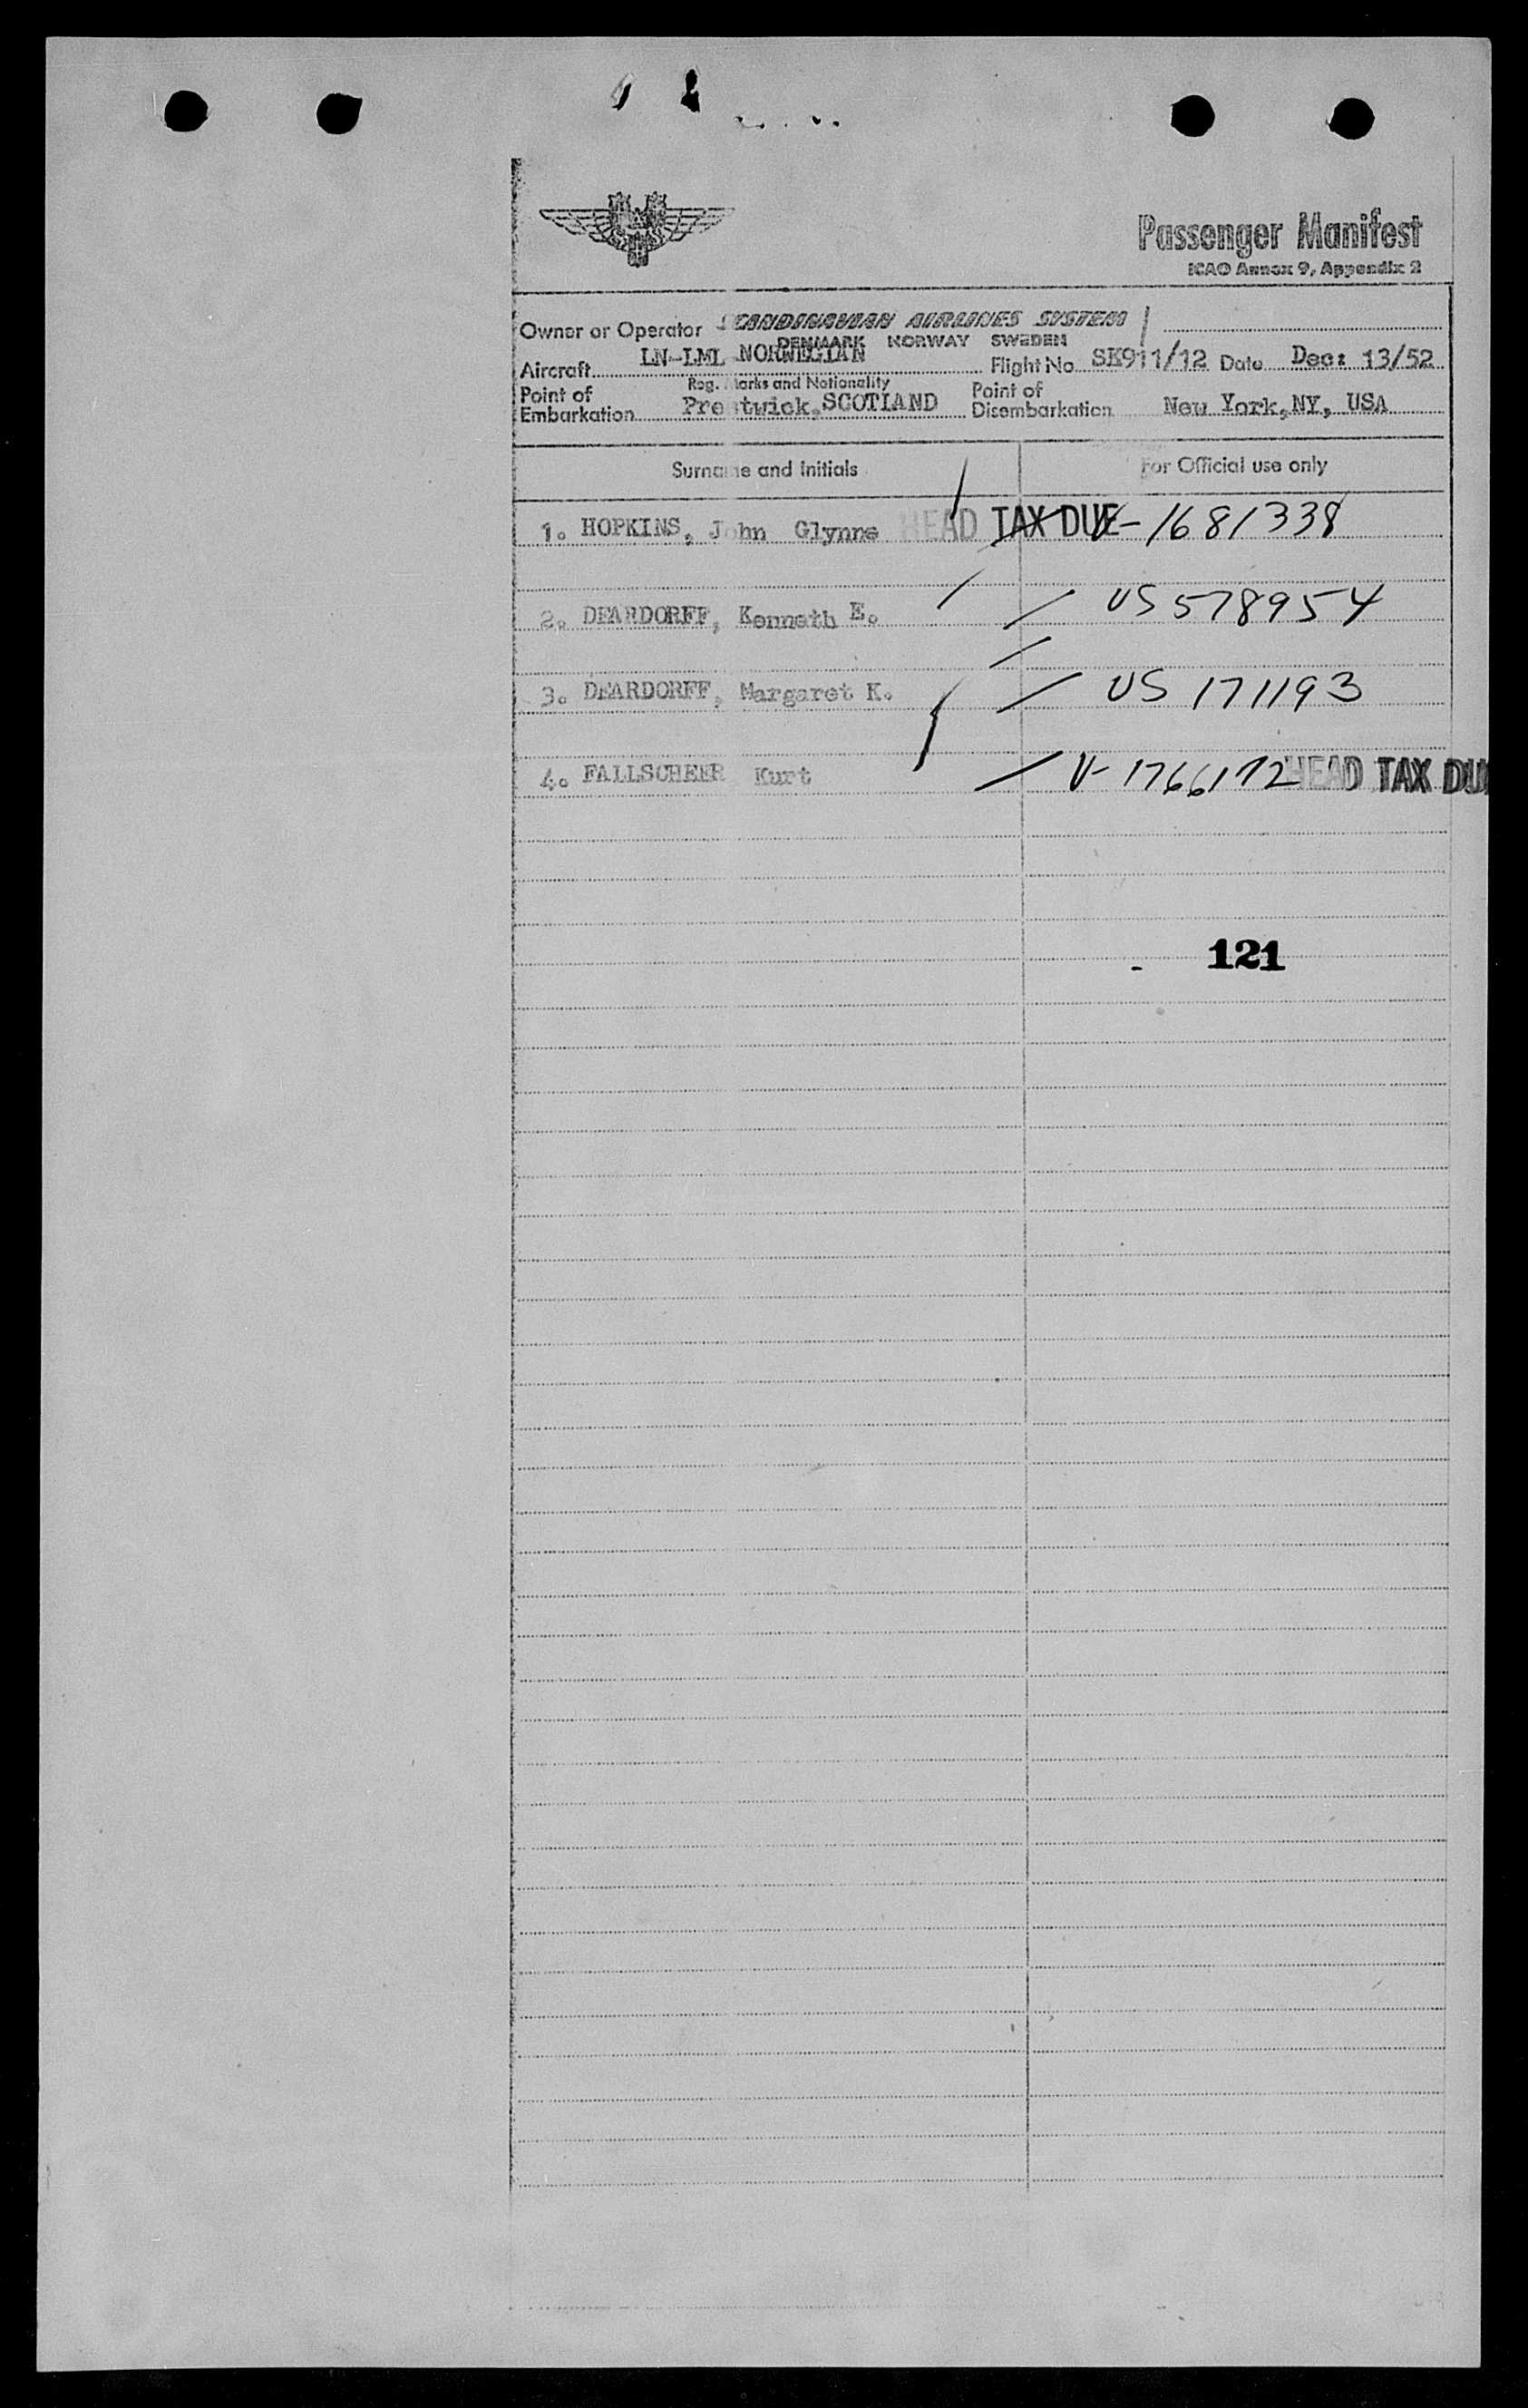 Passenger Manifest
ICAO Annex 9, Appendix 2
Owner or Operator SCANDINAVIAN AIRLINES SYSTEM
DENMARK NORWAY SWEDEN
Aircraft LN-LML NORWEGIAN Flight No SK911/12 Date Dec: 13/52
Reg. Marks and Nationality
Point of Embarkation Prestwick, SCOTLAND Point of Disembarkation New York, NY, USA
Surname and Initials For Official use only
1. HOPKINS, John Glynne HEAD TAX DUE V-1681338
2. DEARDORFF, Kenneth E. US 578954
3. DEARDORFF, Margaret K. US 171193
4. FALLSCHEER Kurt V-1766172 HEAD TAX DU
121